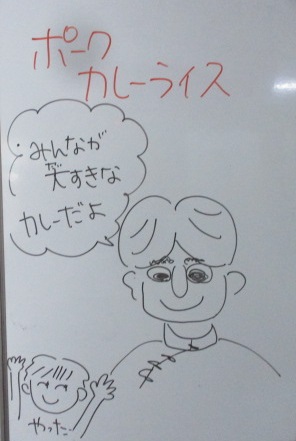 ポーク
カレーライス
みんなが
大すきな
カレーだよ
やったー